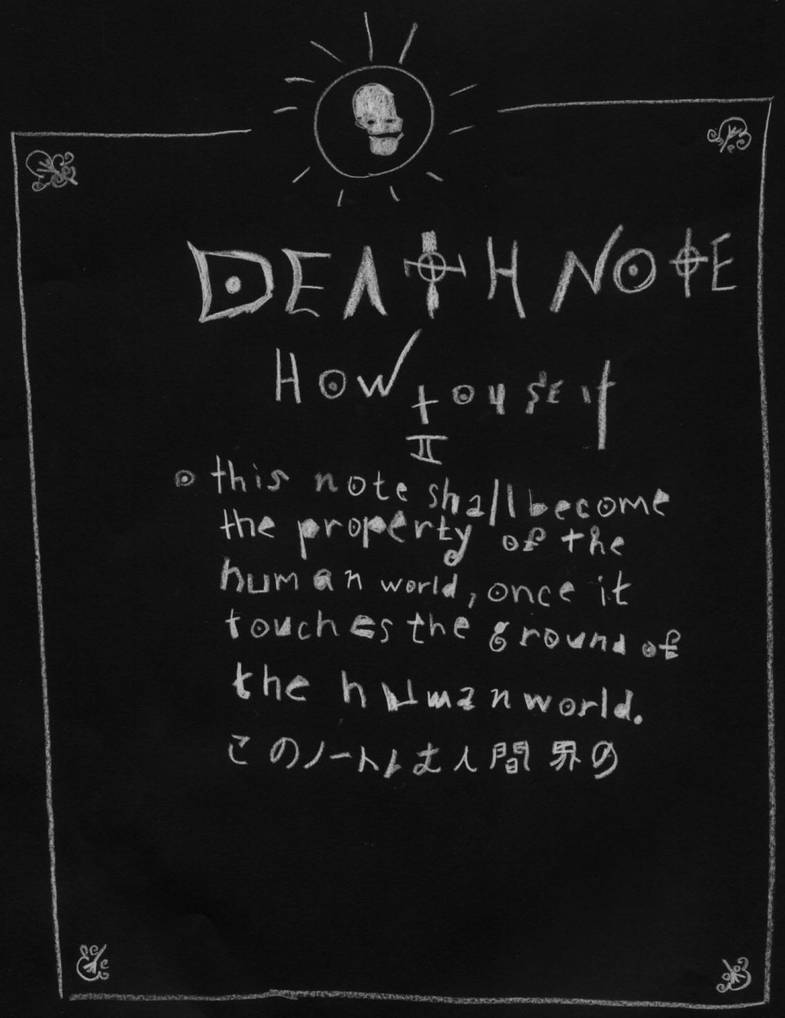 DEATH NOTE
HOW to use it
II
this note shall become
the property of the
human world, once it
touches the ground of
the human world.
このノートは人間界の